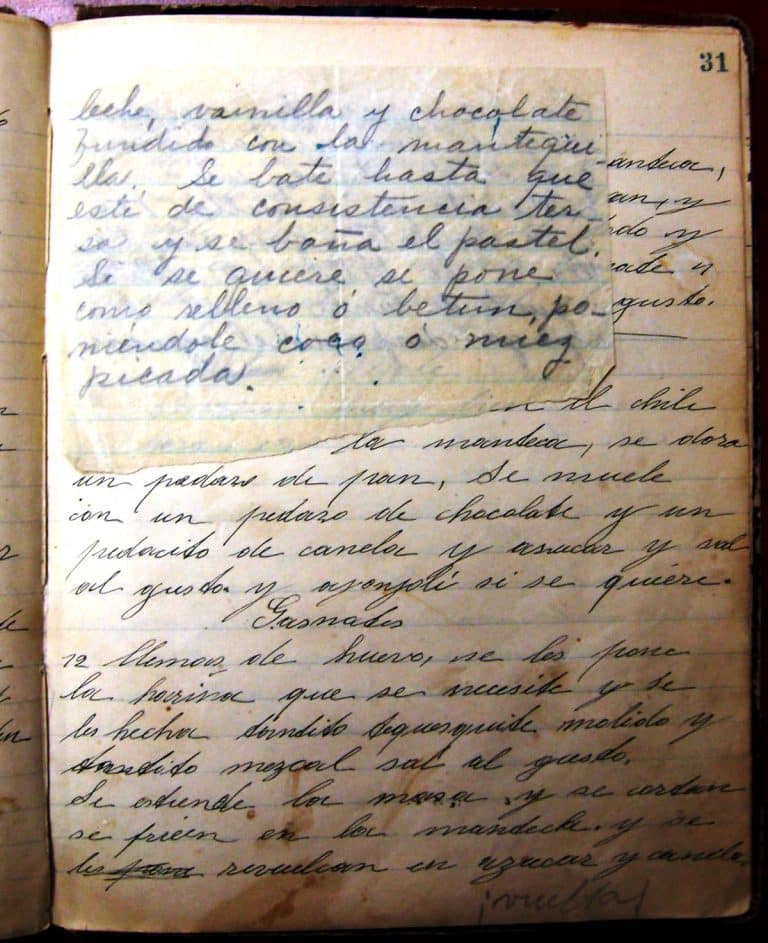 31
leche, vainilla y chocolate
fundido con la mantequi-
lla. Se bate hasta que
esté de consistencia ter-
sa y se baña el pastel.
Si se quiere se pone
como relleno ó betun, po-
niéndole coco ó nuez
picada.
anteca,
an, y
do y
gusto.
el chile
la manteca, se dora
un pedazo de pan, Se muele
con un pedazo de chocolate y un
pedacito de canela y asucar y sal
al gusto. y ajonjolí si se quiere.
Gasnates
12 llemas de huevo, se les pone
la harina que se necesite y se
les hecha tantito tequesquite molido y
tantito mezcal sal al gusto.
Se estiende la masa y se cortan
se frien en la manteca. y se
les pone revuelcan en azucar y canela.
¡vuelta!